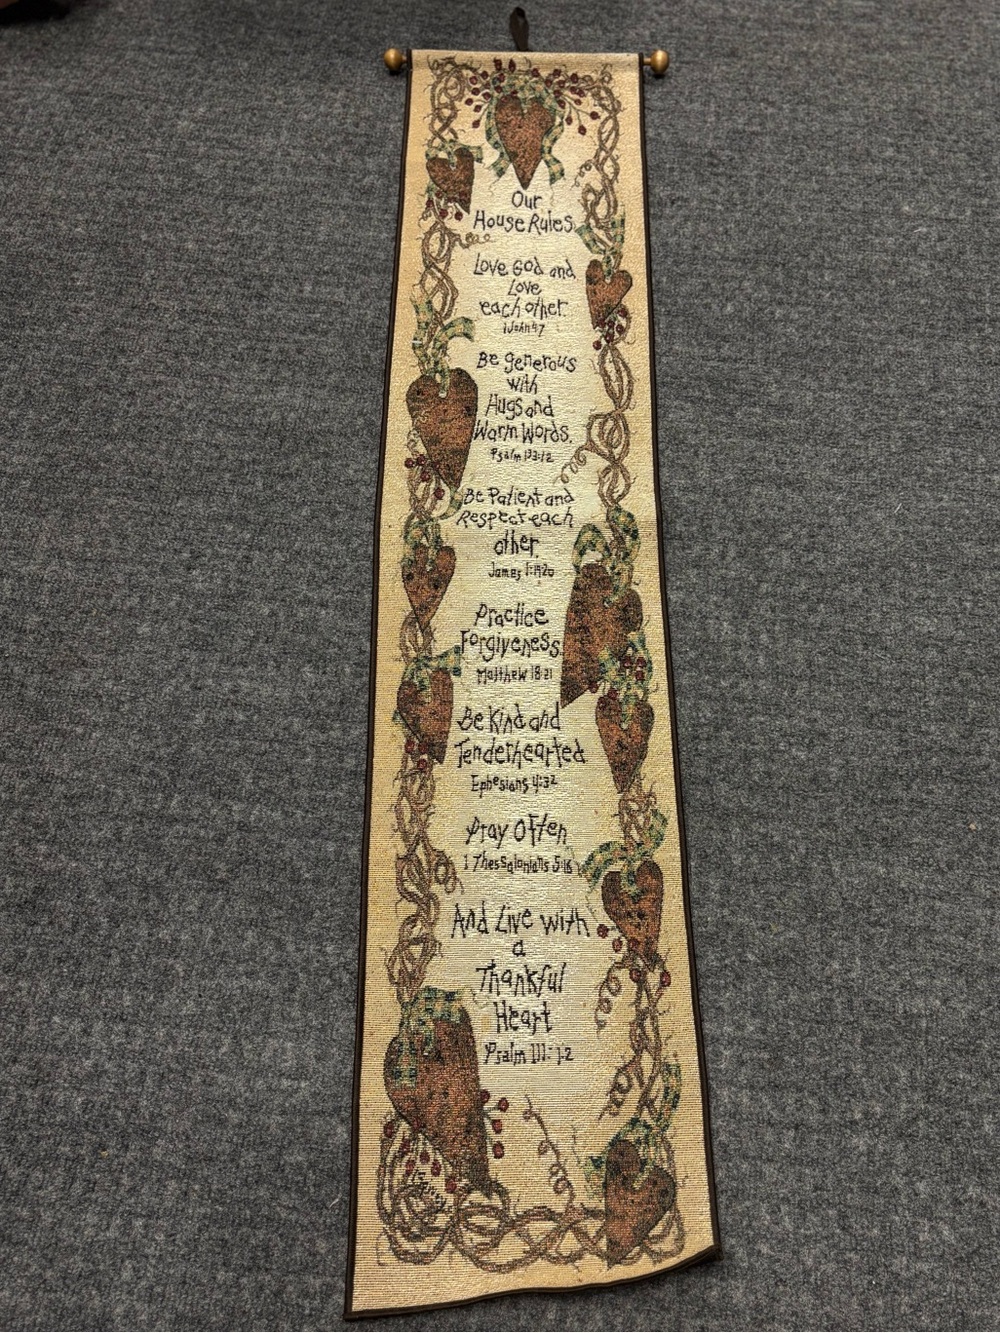 Our
House Rules
Love God and
Love
each other
1 John 4:7
Be generous
with
Hugs and
Warm Words.
Psalm 133:1-2
Be Patient and
Respect each
other.
James 1:19-20
Practice
Forgiveness
Matthew 18:21
Be Kind and
Tenderhearted
Ephesians 4:32
Pray Often
1 Thessalonians 5:16
And Live with
a
Thankful
Heart
Psalm 111:1-2